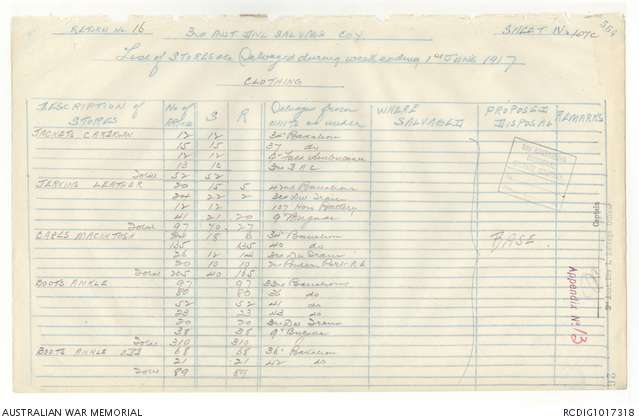 RETURN No. 16 3rd AUST DIVL SALVAGE COY SHEET No
List of STORES &c Salvaged during week ending 1st JUNE 1917
CLOTHING
DESCRIPTION of STORES No of S R Salvaged from units as under WHERE SALVAGED PROPOSED DISPOSAL REMARKS
JACKETS CARDIGAN 12 12 Battalion
15 15 37 do
12 12 Ambulance
13 13
Total 52 52
JERKINS LEATHER 20 15 5 42nd Battalion
24 22 2 Train
12 12 107 How Battery
41 21 20 9th Brigade
Total 97 70 27
CAPES MACKINTOSH Battalion
135 135 40 do
26 12 14 Train
20 10 10
Total 205 40 165
BASE
BOOTS ANKLE 97 97 33rd Battalion
80 80 36 do
52 52 41 do
23 23 43 do
20 20 Train
38 38 9th Brigade
Total 310 310
BOOTS ANKLE 68 68 36 Battalion
21 21 42 do
Total 89 89
Captain
Appendix No. 13
AUSTRALIAN WAR MEMORIAL
RCDIG1017318